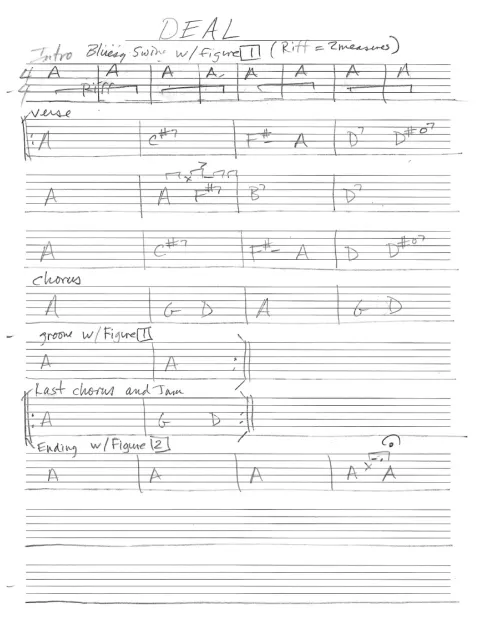 DEAL
Intro Bluesy Swing w/Figure 1 (Riff = 2 measures)
4 A A A A A A A A
4 Riff
Verse
A C#7 F#- A D7 D#o7
3
A A F#7 B7 D7
A C#7 F#- A D D#o7
chorus
A G D A G D
groove w/Figure 1
A A
Last chorus and Jam
A G D
Ending w/Figure 2
A A A A A